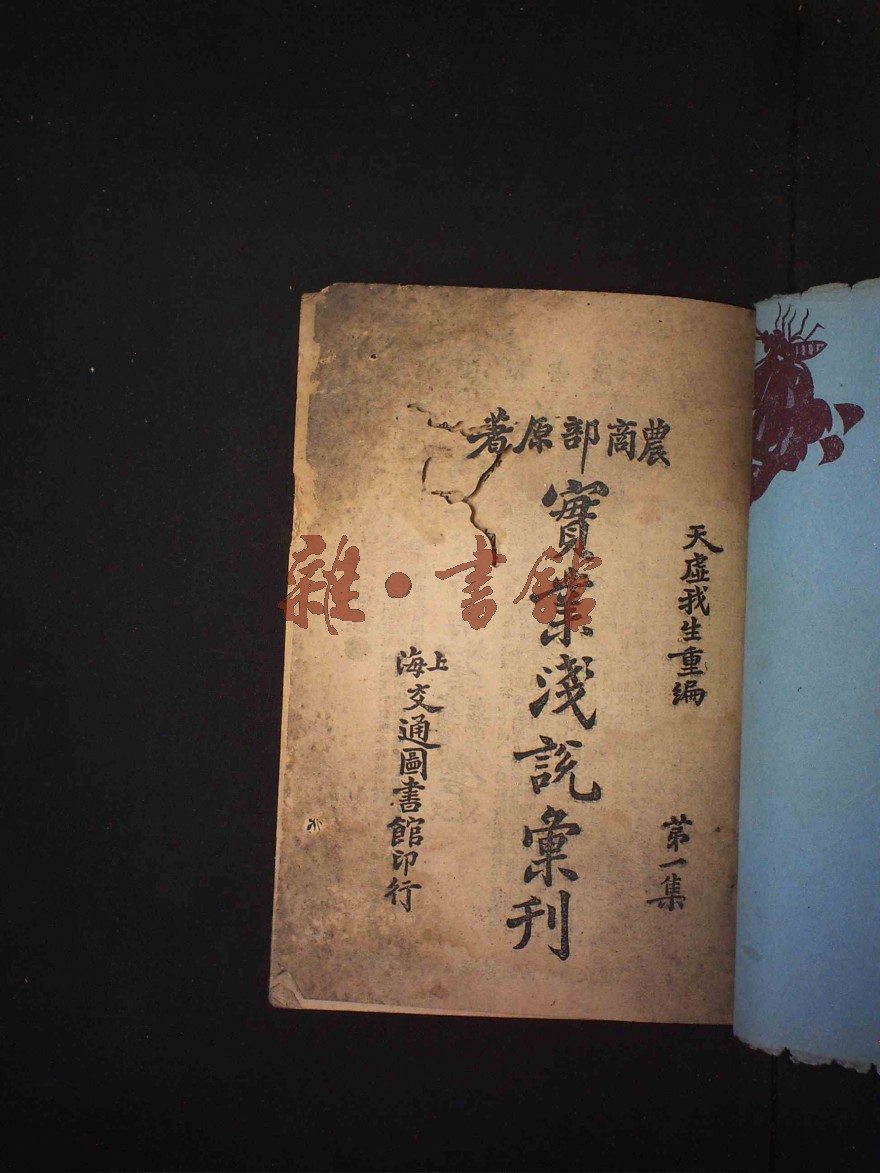 農商部原著
天虛我生重編
第一集
實業淺説彙刊
上海交通圖書館印行
雜·書館